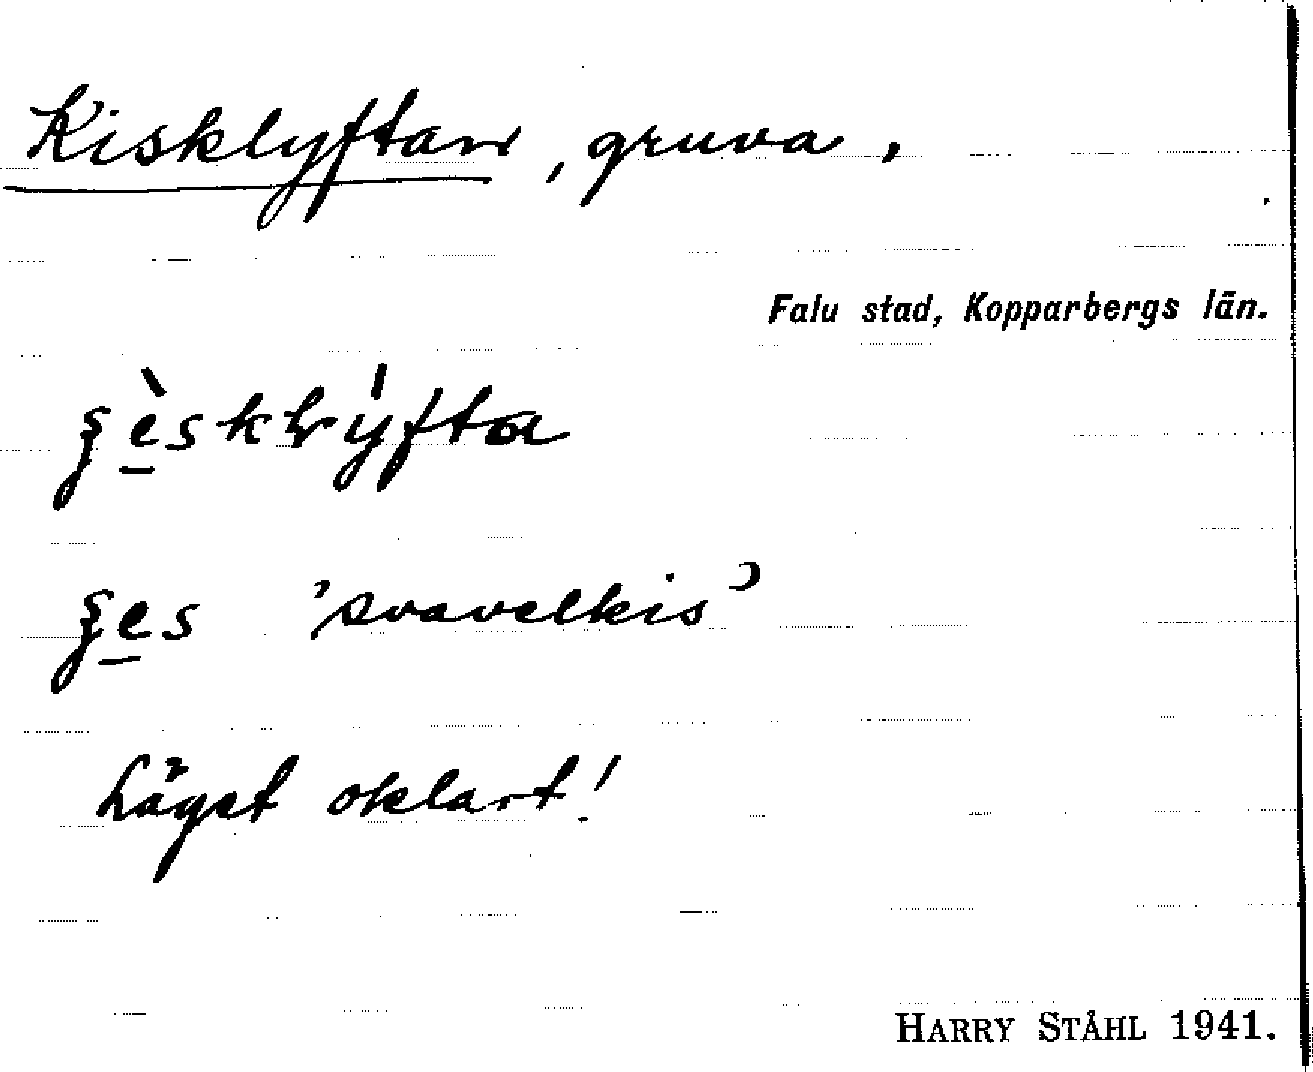 Kisklyftan, gruva,
Falu stad, Kopparbergs län.
'svavelkis'
Läget oklart!
HARRY STÅHL 1941.